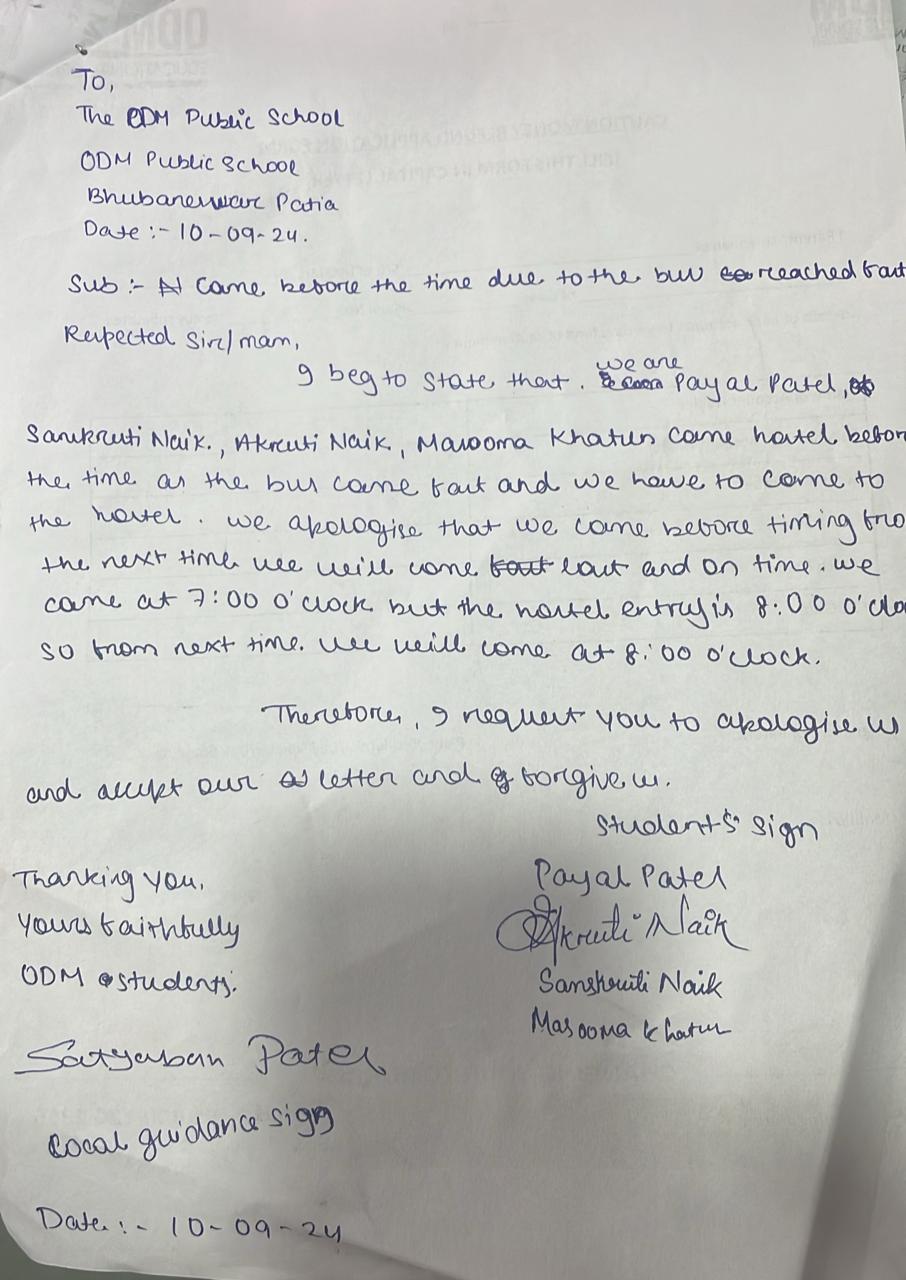 To,
The ODM Public School
ODM Public School
Bhubaneswar Patia
Date :- 10-09-24.
Sub :- Came before the time due to the bus reached fast
Respected Sir/mam,
I beg to state that. we are Payal Patel,
Sanskruti Naik., Akruti Naik, Masooma Khatun came hostel befor
the time as the bus came fast and we have to come to
the hostel. we apologise that we came before timing fro
the next time we will come last and on time. we
came at 7:00 O'clock but the hostel entry is 8:00 O'clo
so from next time. we will come at 8:00 O'clock.
Therefore, I request you to apologise us
and accept our letter and forgive us.
Students sign
Thanking you,
Payal Patel
Yours faithfully
Akruti Naik
ODM students.
Sanskruti Naik
Masooma Khatun
Satyaban Patel
Local guidance sign
Date :- 10-09-24